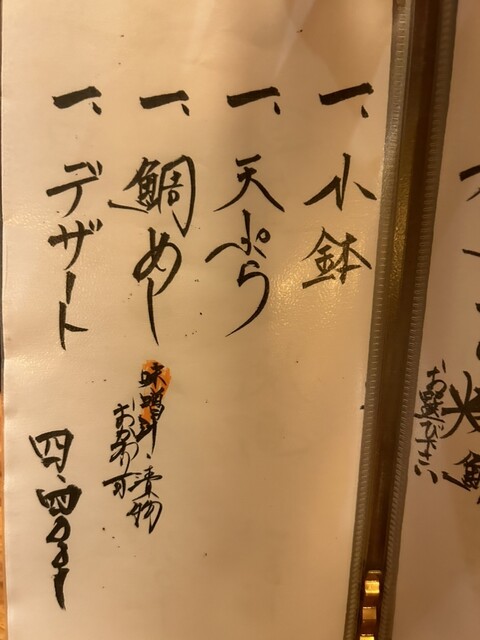 一、小鉢
一、天ぷら
一、鯛めし
味噌汁・漬物
おかわり可
一、デザート
四、四〇〇ー
お選び下さい